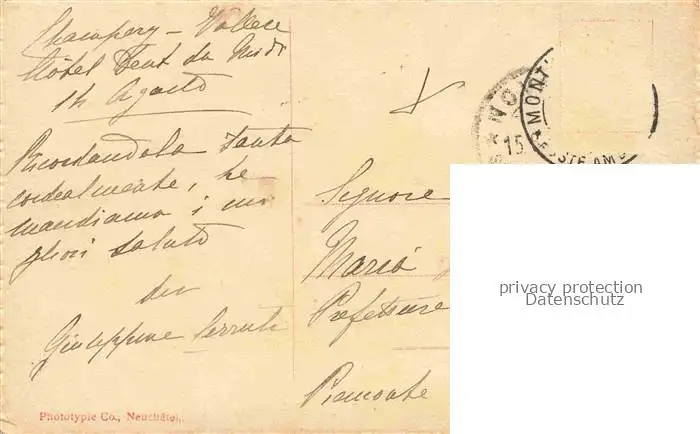 Champery - Vallese
Hôtel Dent du Midi
14 Agosto
Ricordandola tanta
cordealmente, le
mandiamo i mi
gliori saluti
Giuseppina Cerruti
Phototypie Co., Neuchâtel.
Signore
Maria
Prefettura
Piemonte
MONT
15
privacy protection
Datenschutz